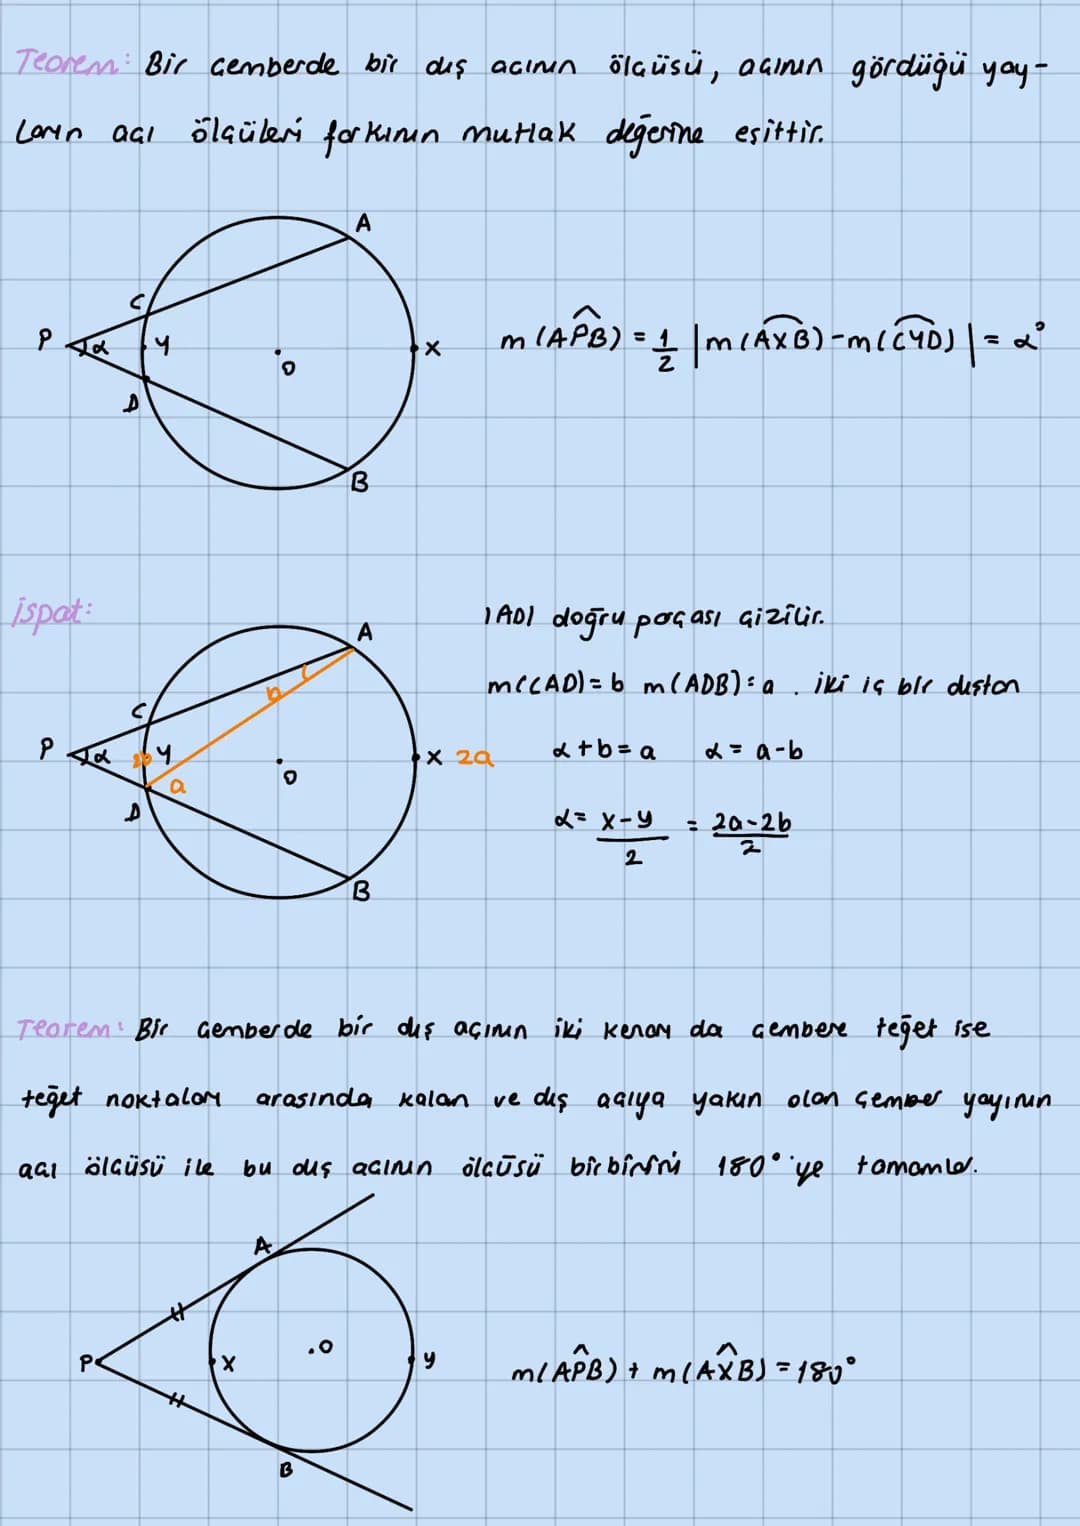 Teorem: Bir çemberde bir dış açının ölçüsü, açının gördüğü yay-
ların açı ölçüleri farkının mutlak değerine eşittir.
A
C
P α y
O
x
m(APB) = 1/2 |m(AXB) - m(CYD)| = α°
D
B
ispat:
|AD| doğru parçası çizilir.
A
m(CAD) = b m(ADB) = a . iki iç bir dıştan
b
C
P α 2b y
O
x 2a
α + b = a α = a - b
a
D
α = x-y/2 = 2a-2b/2
B
Teorem: Bir çemberde bir dış açının iki kenarı da çembere teğet ise
teğet noktaları arasında kalan ve dış açıya yakın olan çember yayının
açı ölçüsü ile bu dış açının ölçüsü birbirini 180°'ye tamamlar.
A
P x
.O
y
m(APB) + m(AXB) = 180°
B